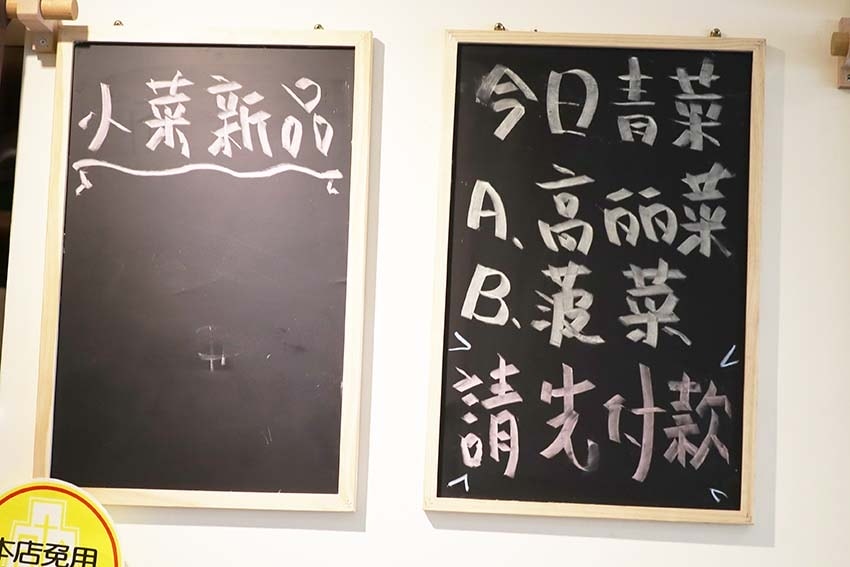 小菜新品
今日青菜
A、高丽菜
B、菠菜
請先付款
本店免用